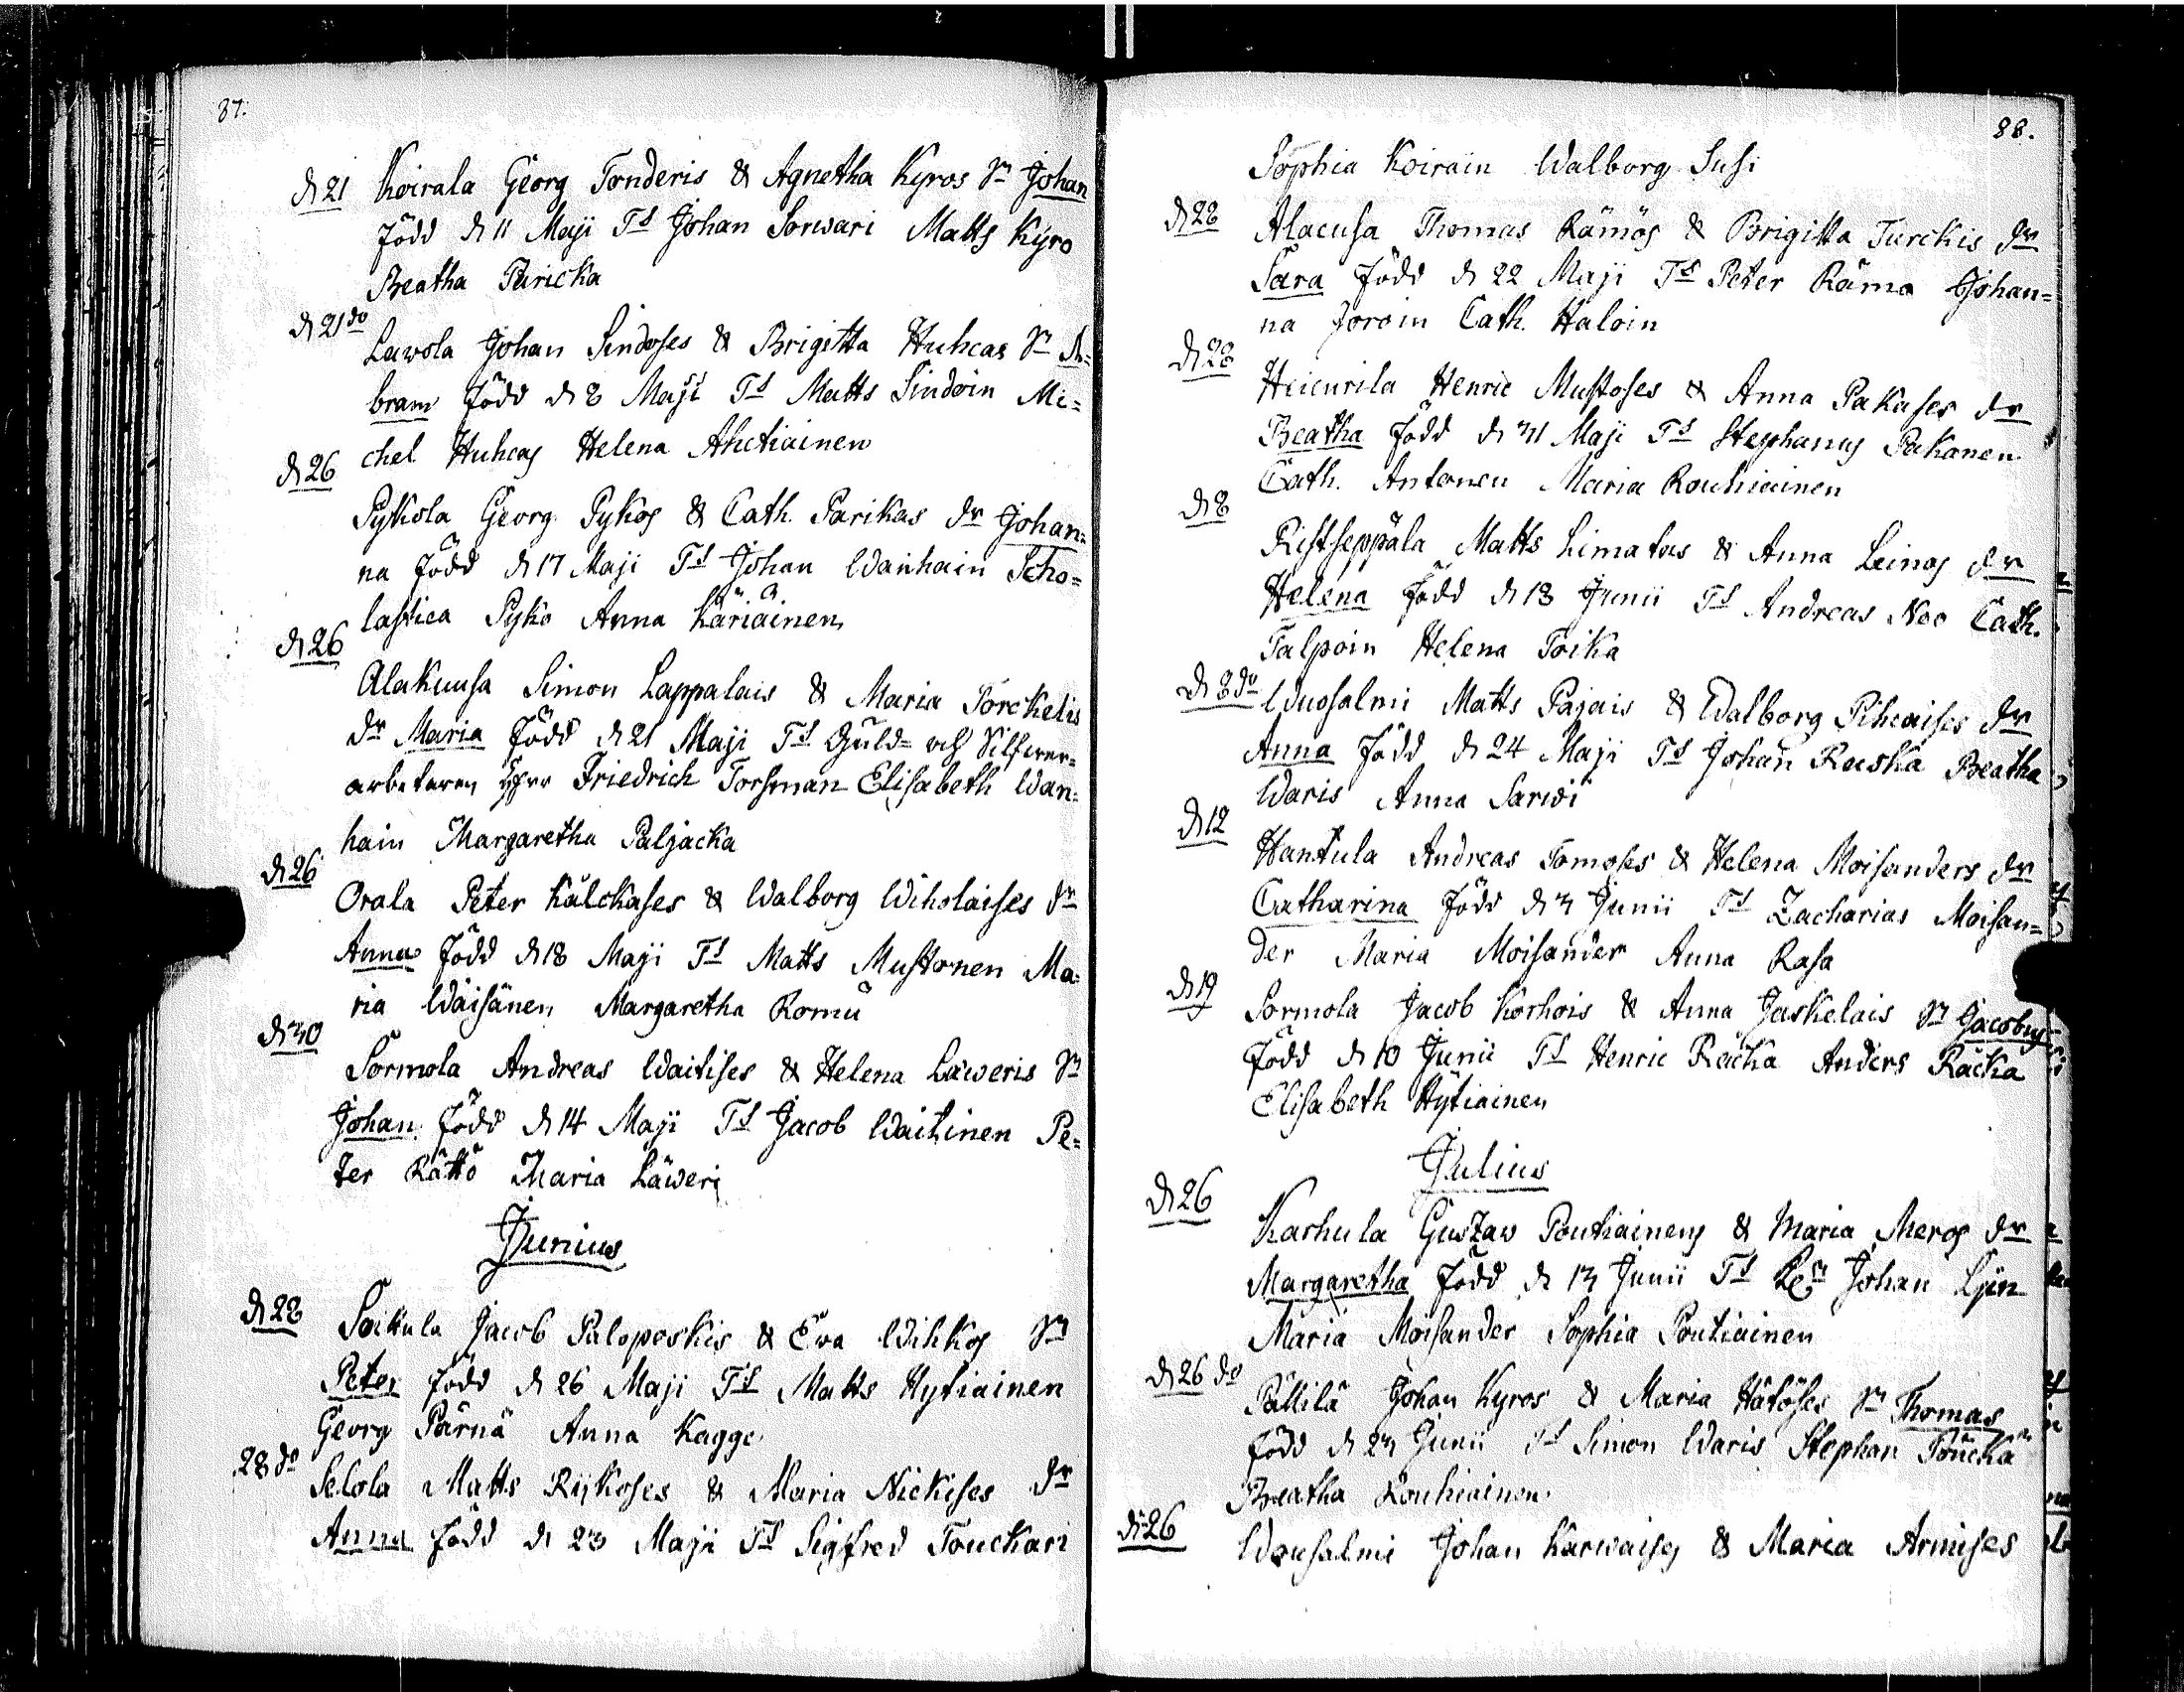 87.
d 21 Koirala Georg Tonderis & Agnetha Kyros Sn Johan
född d 11 Maji Ts Johan Sorwari Matts Kyro
Beatha Paricka
d 21 do Lawola Johan Sindoses & Brigitta Huhcas Sn A=
bram född d 8 Maji Ts Matts Sindoin Mi=
chel Huhcas Helena Ahctiainen
d 26
Pykola Georg Pykos & Cath. Parikas dr Johan=
na född d 17 Maji Ts Johan Wanhain Scho=
lastica Pyko Anna Käriäinen
d 26
Alakuusa Simon Lappalais & Maria Torckelis
dr Maria född d 21 Maji Ts Guld= och Silfwer=
arbetaren Herr Friedrich Forsman Elisabeth Wan=
hain Margaretha Paljacka
d 26
Orala Peter Kälckases & Walborg Wiholaises dr
Anna född d 18 Maji Ts Matts Mustonen Ma=
ria Wäisänen Margaretha Romu
d 30
Sormola Andreas Waitises & Helena Läweris Sn
Johan född d 14 Maji Ts Jacob Waitinen Pe=
ter Rättö Maria Läweri
Junius
d 28 Soikula Jacob Paloposkis & Eva Wihkos Sn
Peter född d 26 Maji Ts Matts Hytiainen
Georg Pärnä Anna Kagge
28 do
Selola Matts Rykoses & Maria Nickises dr
Anna född d 23 Maji Ts Sigfred Touckari
88.
Sophia Koirain Walborg Susi
d 28 Alacusa Thomas Rämös & Brigitta Turckis dr
Sara född d 22 Maji Ts Peter Rämä Johan=
na Joroin Cath. Haloin
d 28
Heicurila Henric Mustoses & Anna Pakases dr
Beatha född d 31 Maji Ts Stephanus Pakanen
Cath. Antonen Maria Rouhiainen
d 8
Ristseppälä Matts Limatas & Anna Leinos dr
Helena född d 13 Junii Ts Andreas Noo Cath.
Talpoin Helena Toika
d 8 do Wuosalmi Matts Pajais & Walborg Pihcaises dr
Anna född d 24 Maji Ts Johan Reeska Beatha
Waris Anna Sarwi
d 12
Hantula Andreas Tomoses & Helena Moisanders dr
Catharina född d 3 Junii Ts Zacharias Moisan=
der Maria Moisander Anna Rasa
d 19
Sormola Jacob Korhois & Anna Jaskelais Sn Jacobus
född d 10 Junii Ts Henric Räcka Anders Räcka
Elisabeth Hytiainen
Julius
d 26
Karhula Gustaw Poutiainens & Maria Meros dr
Margaretha född d 13 Junii Ts Johan
Maria Moisander Sophia Poutiainen
d 26 do
Pällilä Johan Kyros & Maria Hätöses Sn Thomas
född d 23 Junii Ts Simon Waris Stephan Toucka
Beatha Rouhiainen
d 26
Wousalmi Johan Karwaises & Maria Armises